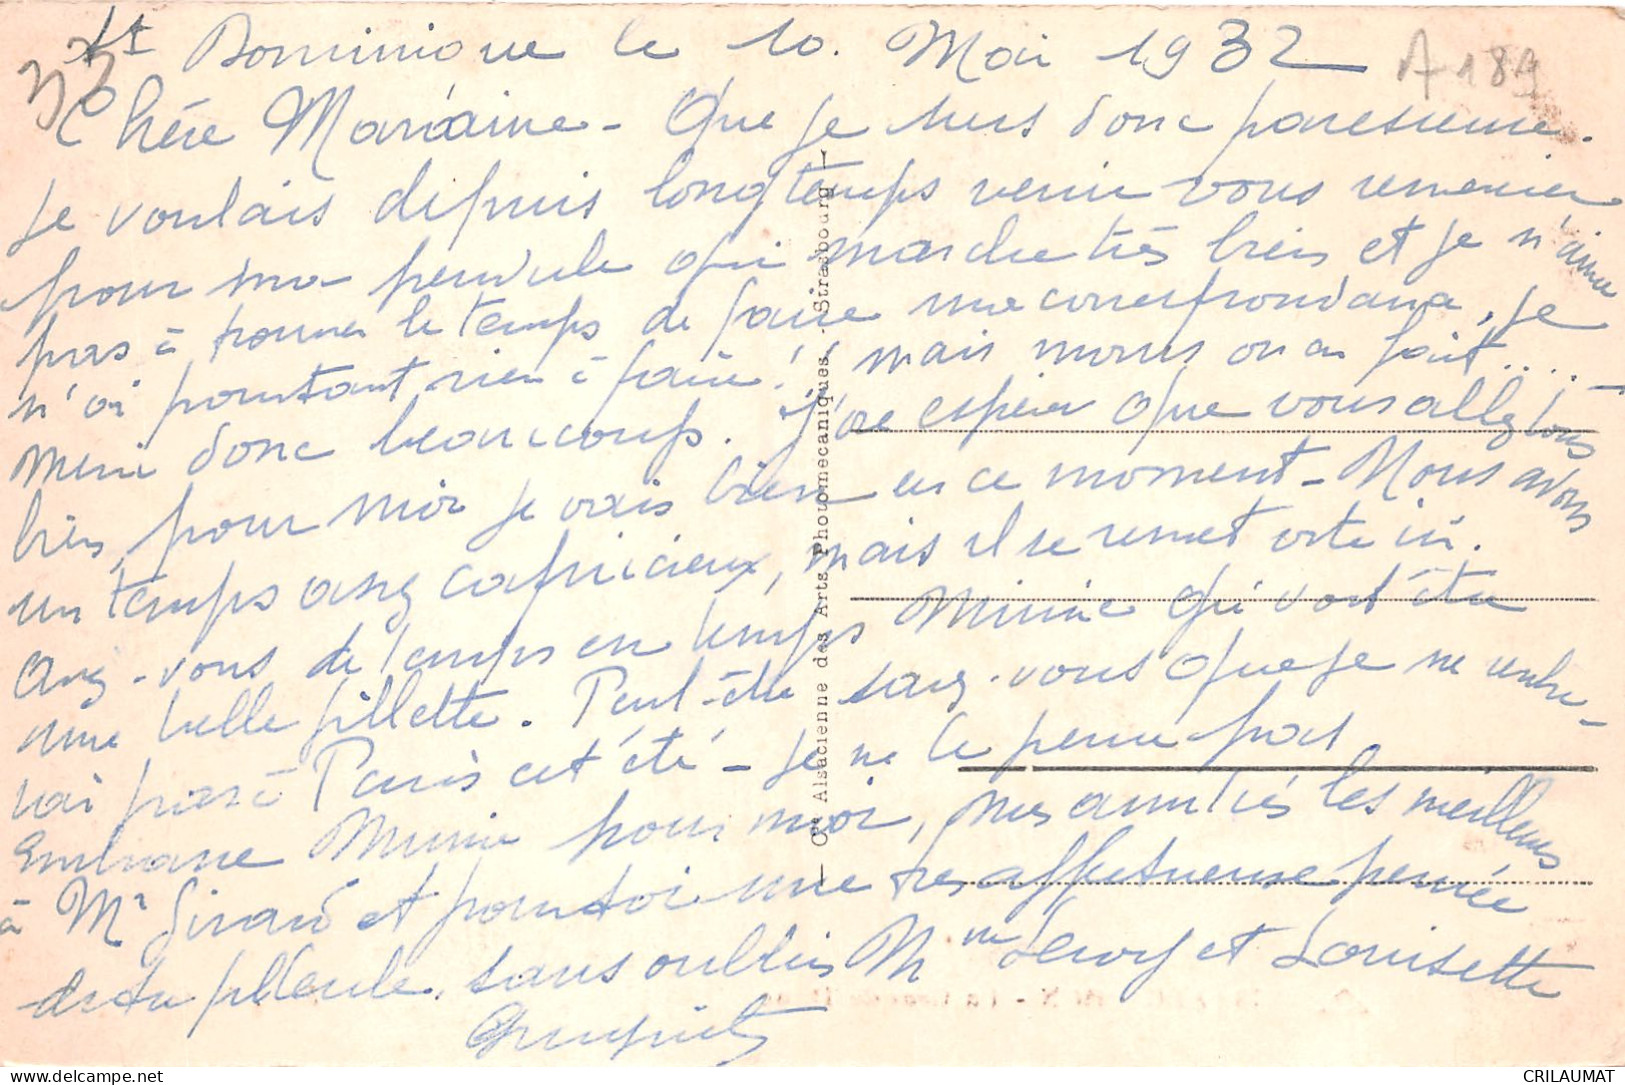 St Dominique le 10. Mai 1932
A 189
33
Chère Marraine - Que je suis donc paresseuse.
Je voulais depuis longtemps venir vous remercier
pour ma pendule qui marche très bien et je n'arrive
pas à trouver le temps de faire ma correspondance, je
n'ai pourtant rien à faire! mais moins on en fait....
Merci donc beaucoup. J'ose espérer que vous allez tous
bien, pour moi je vais bien en ce moment - Nous avons
un temps assez capricieux, mais il se remet vite ici.
Avez-vous de temps en temps Mimie qui doit être
une belle fillette. Peut-être savez-vous que je ne
pas à Paris cet été - Je ne le pense pas
Embrasse Mimie pour moi, mes amitiés les meilleures
à Mr Girard et pour toi une très affectueuse pensée
de ta filleule, sans oublier Mme Leroy et Louisette
Cie Alsacienne des Arts Photomécaniques - Strasbourg
delcampe.net
CRILAUMAT